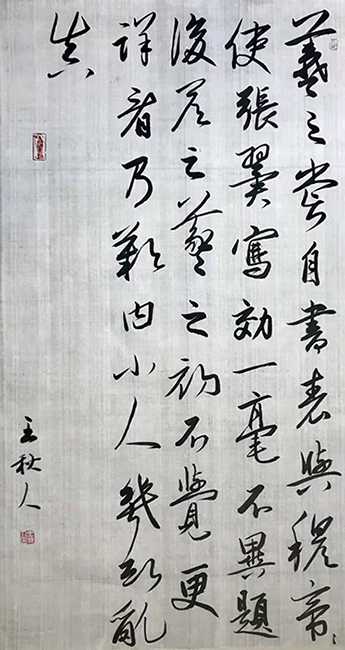 羲之嘗自書表與穆帝〻
使張翼寫効一毫不異題
後答之羲之初不覺更
詳看乃歎曰小人幾欲亂
真
王秋人